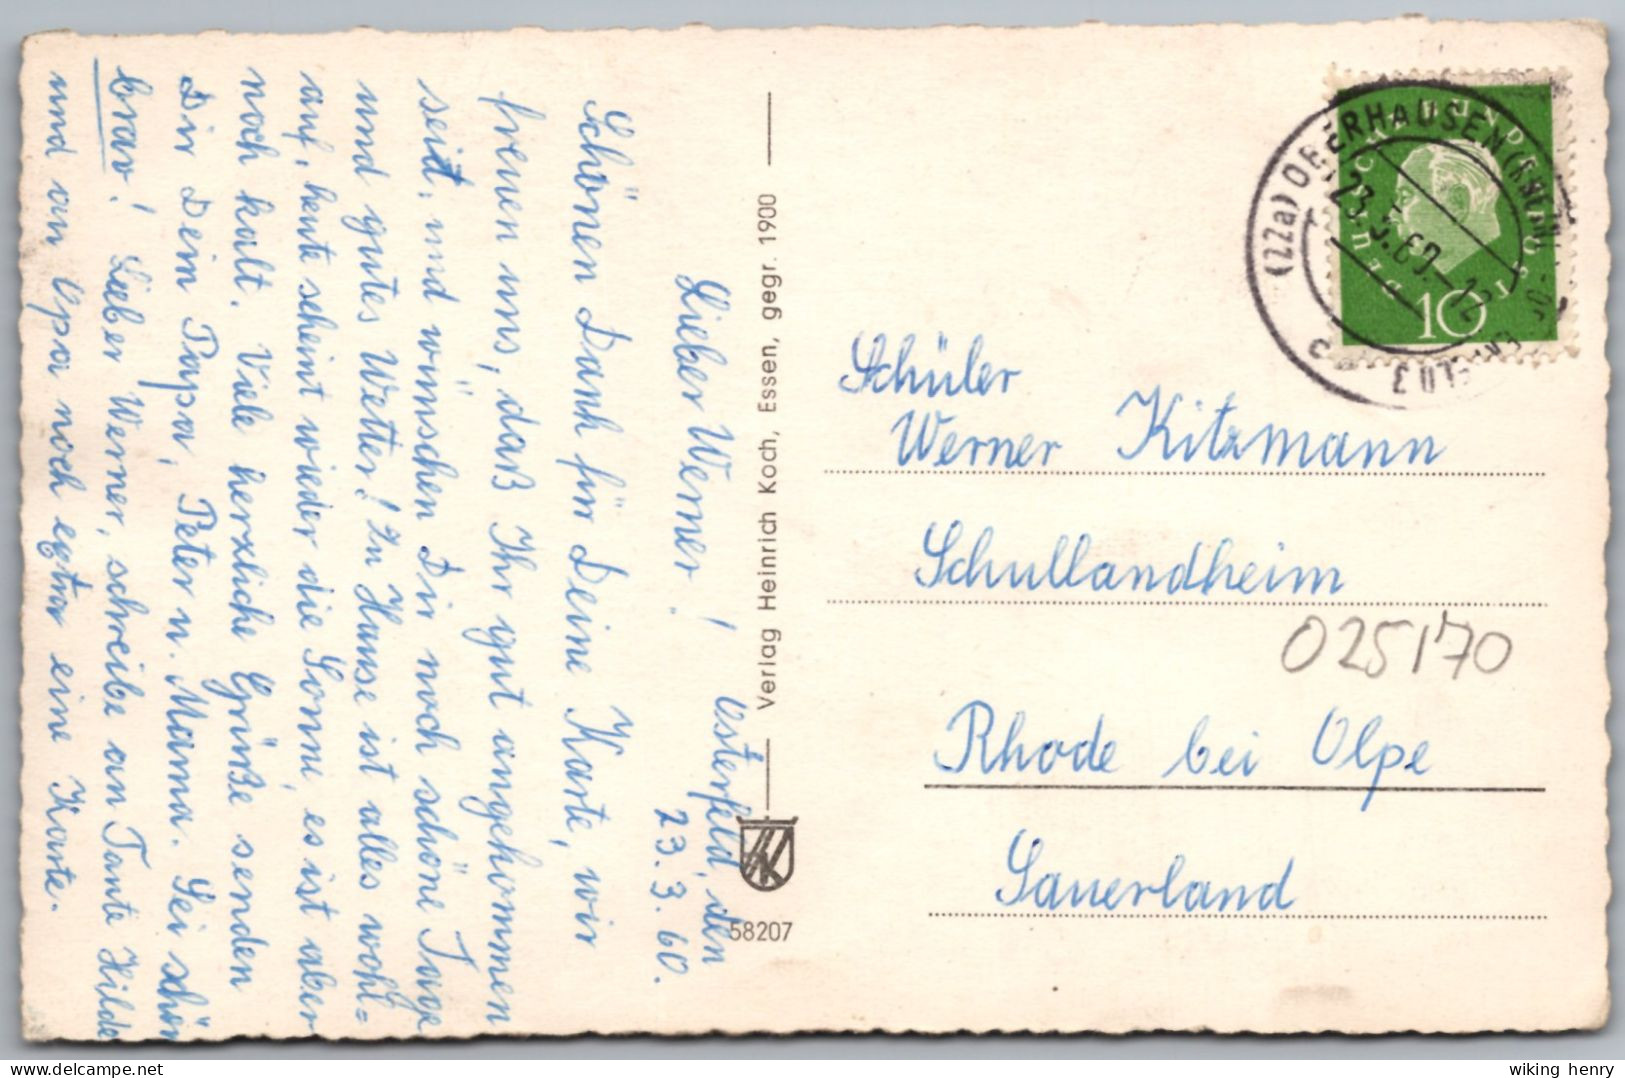 Osterfeld, den
23.3.60.
Lieber Werner!
Schönen Dank für Deine Karte, wir
freuen uns, daß Ihr gut angekommen
seid, und wünschen Dir noch schöne Tage
und gutes Wetter! Zu Hause ist alles wohl=
auf, heute scheint wieder die Sonne, es ist aber
noch kalt. Viele herzliche Grüße senden
Dir Dein Papa, Peter u. Mama. Sei schön
brav! Lieber Werner, schreibe an Tante Hilde
und an Opa noch extra eine Karte.
Verlag Heinrich Koch, Essen, gegr. 1900
58207
DEUTSCHE BUNDESPOST
10
(22a) OBERHAUSEN (RHEINL)-OSTERFELD 3
23.3.60.-12
c
Schüler
Werner Kitzmann
Schullandheim
025170
Rhode bei Olpe
Sauerland
wiking henry